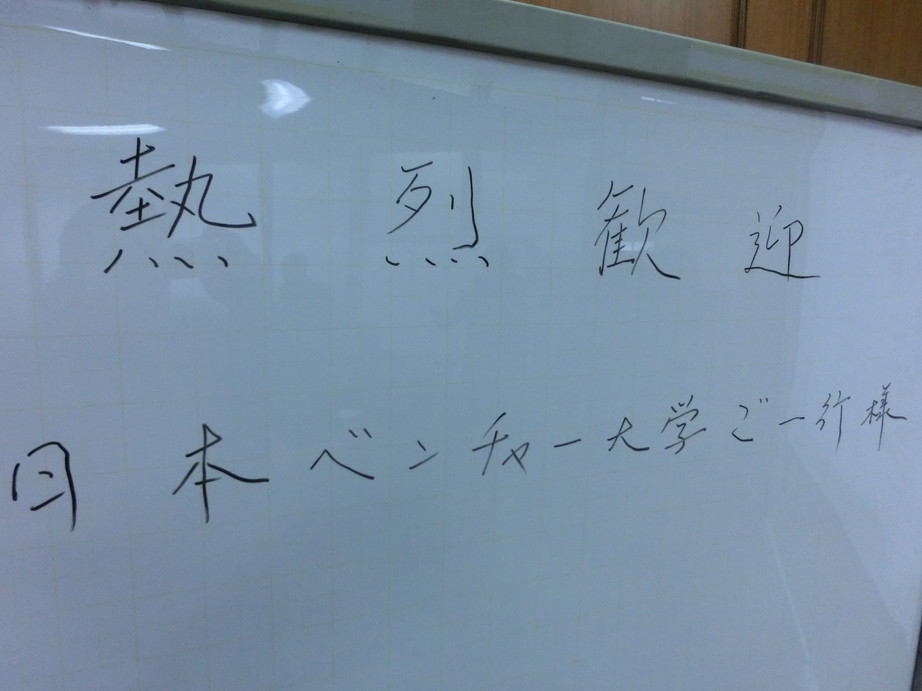 熱烈歓迎
日本ベンチャー大学ご一行様